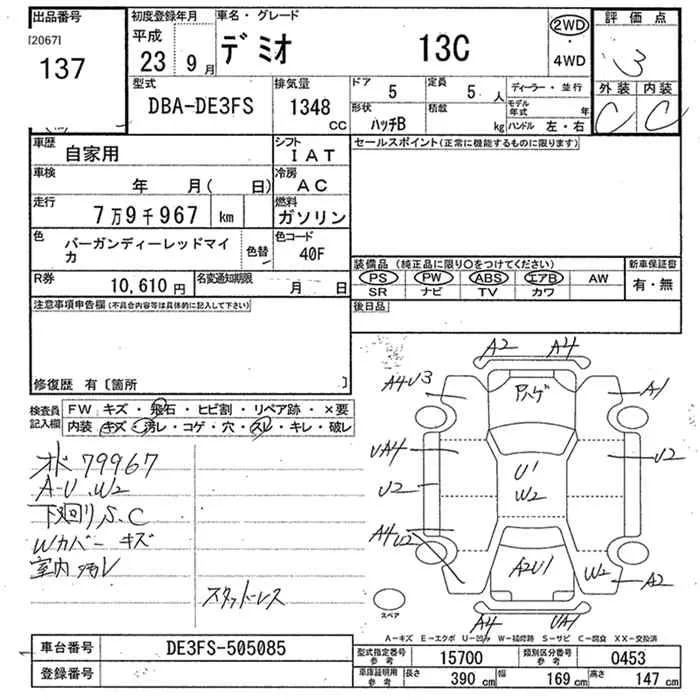 出品番号 初度登録年月 車名・グレード 2WD 評価点
[2067] 平成
137 23年 9月 デミオ 13C ・ 4WD 3
型式 排気量 ドア 5 定員 5人 ディーラー・並行 外装 内装
DBA-DE3FS 1348 CC 形状 ハッチB 積載 kg モデル年式 年 C C
ハンドル 左・右
車歴 自家用 シフト IAT セールスポイント(正常に機能するものに限ります)
車検 年 月( 日) 冷房 AC
走行 7万9千967 km 燃料 ガソリン
色 バーガンディーレッドマイカ 色替 色コード 40F
装備品 (純正品に限り〇をつけてください) 新車保証書
R券 10,610円 名変通知期限 月 日 PS PW ABS エアB AW 有・無
SR ナビ TV カワ
注意事項申告欄(不具合内容等は具体的に記入して下さい) 後日品
修復歴 有〔箇所 〕
検査員記入欄 FW キズ・飛石・ヒビ割・リペア跡・×要
内装 キズ・汚レ・コゲ・穴・スレ・キレ・破レ
オド 79967
A-U.W2
下廻りS.C
Wカバー キズ
室内汚レ
スタッドレス
A2 A4
A4U3 Pハゲ A1
UA4 U1 U2
U2 W2
A4U2 A2U1 W2 A2
A4 UA1
スペア
A-キズ E-エクボ U-凹み W-補修跡 S-サビ C-腐食 XX-交換済
車台番号 DE3FS-505085 型式指定番号 参考 15700 類別区分番号 参考 0453
登録番号 車庫証明用 参考 長さ 390cm 幅 169cm 高さ 147cm